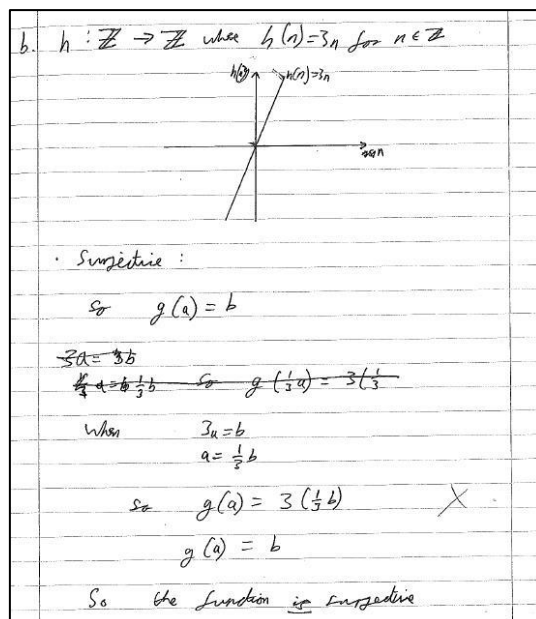 b. h : ℤ → ℤ where h(n)=3n for n∈ℤ
h(n)=3n
n
· Surjective :
so g(a) = b
3a = 3b
a = 1/3 b so g(1/3 a) = 3(1/3
when 3a = b
a = 1/3 b
so g(a) = 3(1/3 b) X
g(a) = b
So the function is surjective